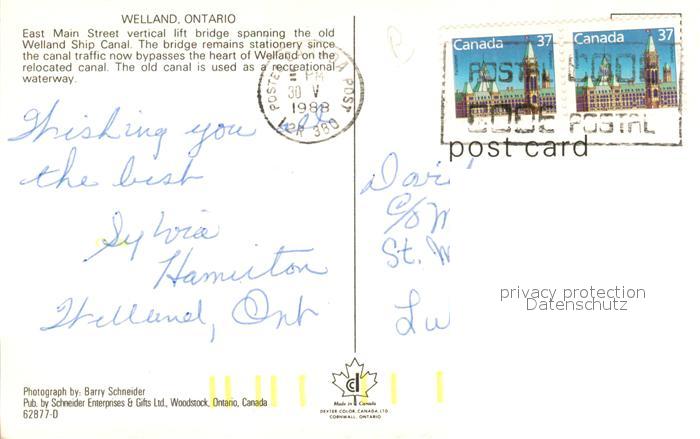 WELLAND, ONTARIO
East Main Street vertical lift bridge spanning the old
Welland Ship Canal. The bridge remains stationery since
the canal traffic now bypasses the heart of Welland on the
relocated canal. The old canal is used as a recreational
waterway.
Canada 37
Canada 37
POSTAL CODE
CODE POSTAL
30 V
1988
post card
Wishing you all
the best
Sylvia
Hamilton
Welland, Ont
Davi
c/o M
St. M
Lu
privacy protection
Datenschutz
Photograph by: Barry Schneider
Pub. by Schneider Enterprises & Gifts Ltd., Woodstock, Ontario, Canada
62877-D
Made in Canada
DEXTER COLOR CANADA LTD.
CORNWALL, ONTARIO